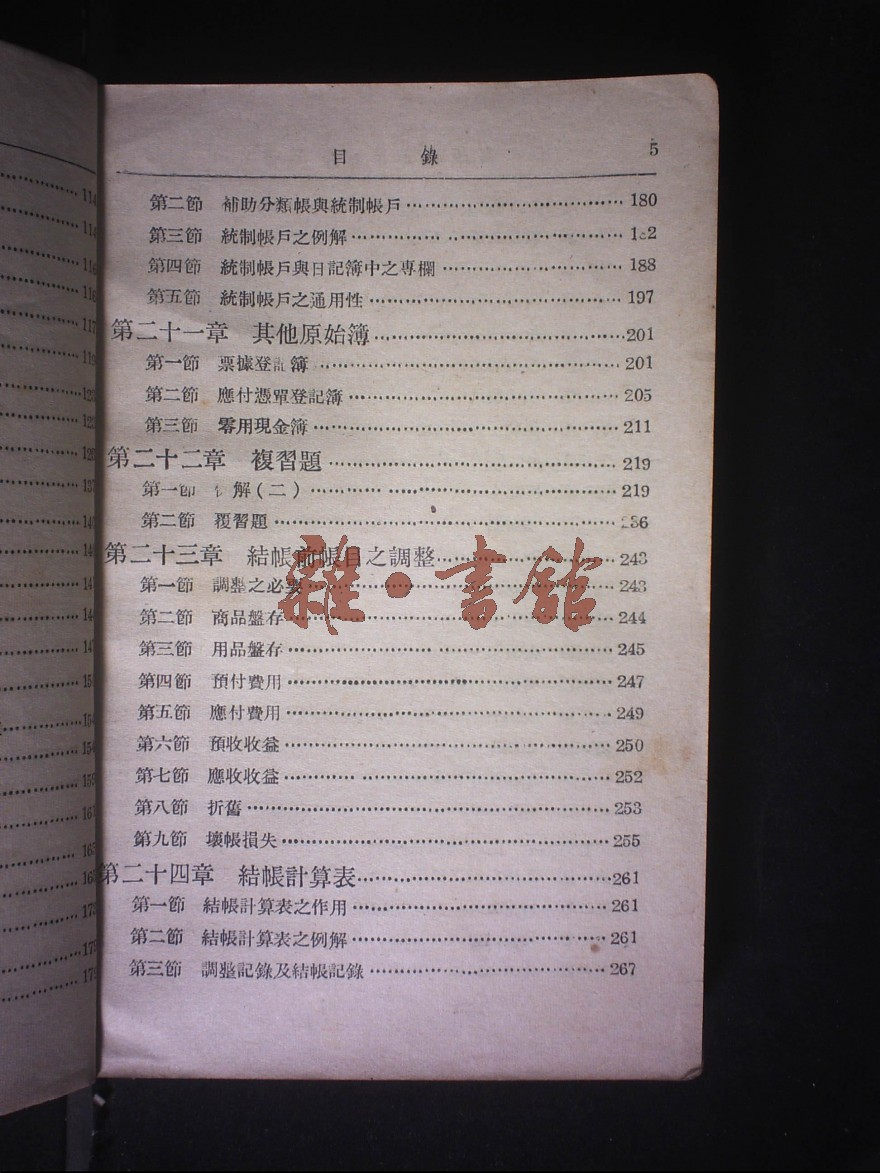 目 錄 5
第二節 補助分類帳與統制帳戶 180
第三節 統制帳戶之例解
第四節 統制帳戶與日記簿中之專欄 188
第五節 統制帳戶之通用性 197
第二十一章 其他原始簿 201
第一節 票據登記簿 201
第二節 應付憑單登記簿 205
第三節 零用現金簿 211
第二十二章 複習題 219
第一節 解(二) 219
第二節 覆習題
第二十三章 結帳前帳目之調整 243
第一節 調整之必要 243
第二節 商品盤存 244
第三節 用品盤存 245
第四節 預付費用 247
第五節 應付費用 249
第六節 預收收益 250
第七節 應收收益 252
第八節 折舊 253
第九節 壞帳損失 255
第二十四章 結帳計算表 261
第一節 結帳計算表之作用 261
第二節 結帳計算表之例解 261
第三節 調整記錄及結帳記錄 267
雜·書館
114
114
116
116
117